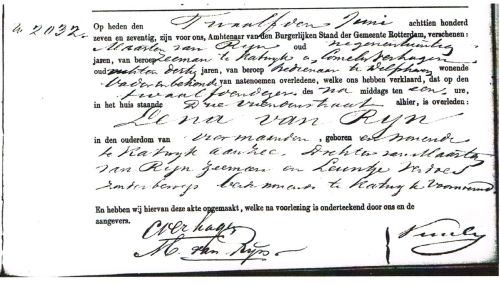 N 2032.
Op heden den Twaalfden Juni achttien honderd
zeven en zeventig, zijn voor ons, Ambtenaar van den Burgerlijken Stand der Gemeente Rotterdam, verschenen:
Maarten van Rijn oud negenentwintig
jaren, van beroep Zeeman te Katwyk en Cornelis Verhagen
oud achten dertig jaren, van beroep Bediende te Delfshaven wonende
Vader en bekende van natenoemen overledene, welke ons hebben verklaard, dat op den
twaalf dezer des na middags ten een ure,
in het huis staande Drievriendenstraat alhier, is overleden:
Lena van Rijn
in den ouderdom van vier maanden, geboren en wonende
te Katwyk aan Zee. Dochter van Maarten
van Rijn Zeeman en Leuntje
zonder beroep beide wonende te Katwyk voornoemd
En hebben wij hiervan deze akte opgemaakt, welke na voorlezing is onderteekend door ons en de
aangevers.
C Verhagen
M. van Rijn